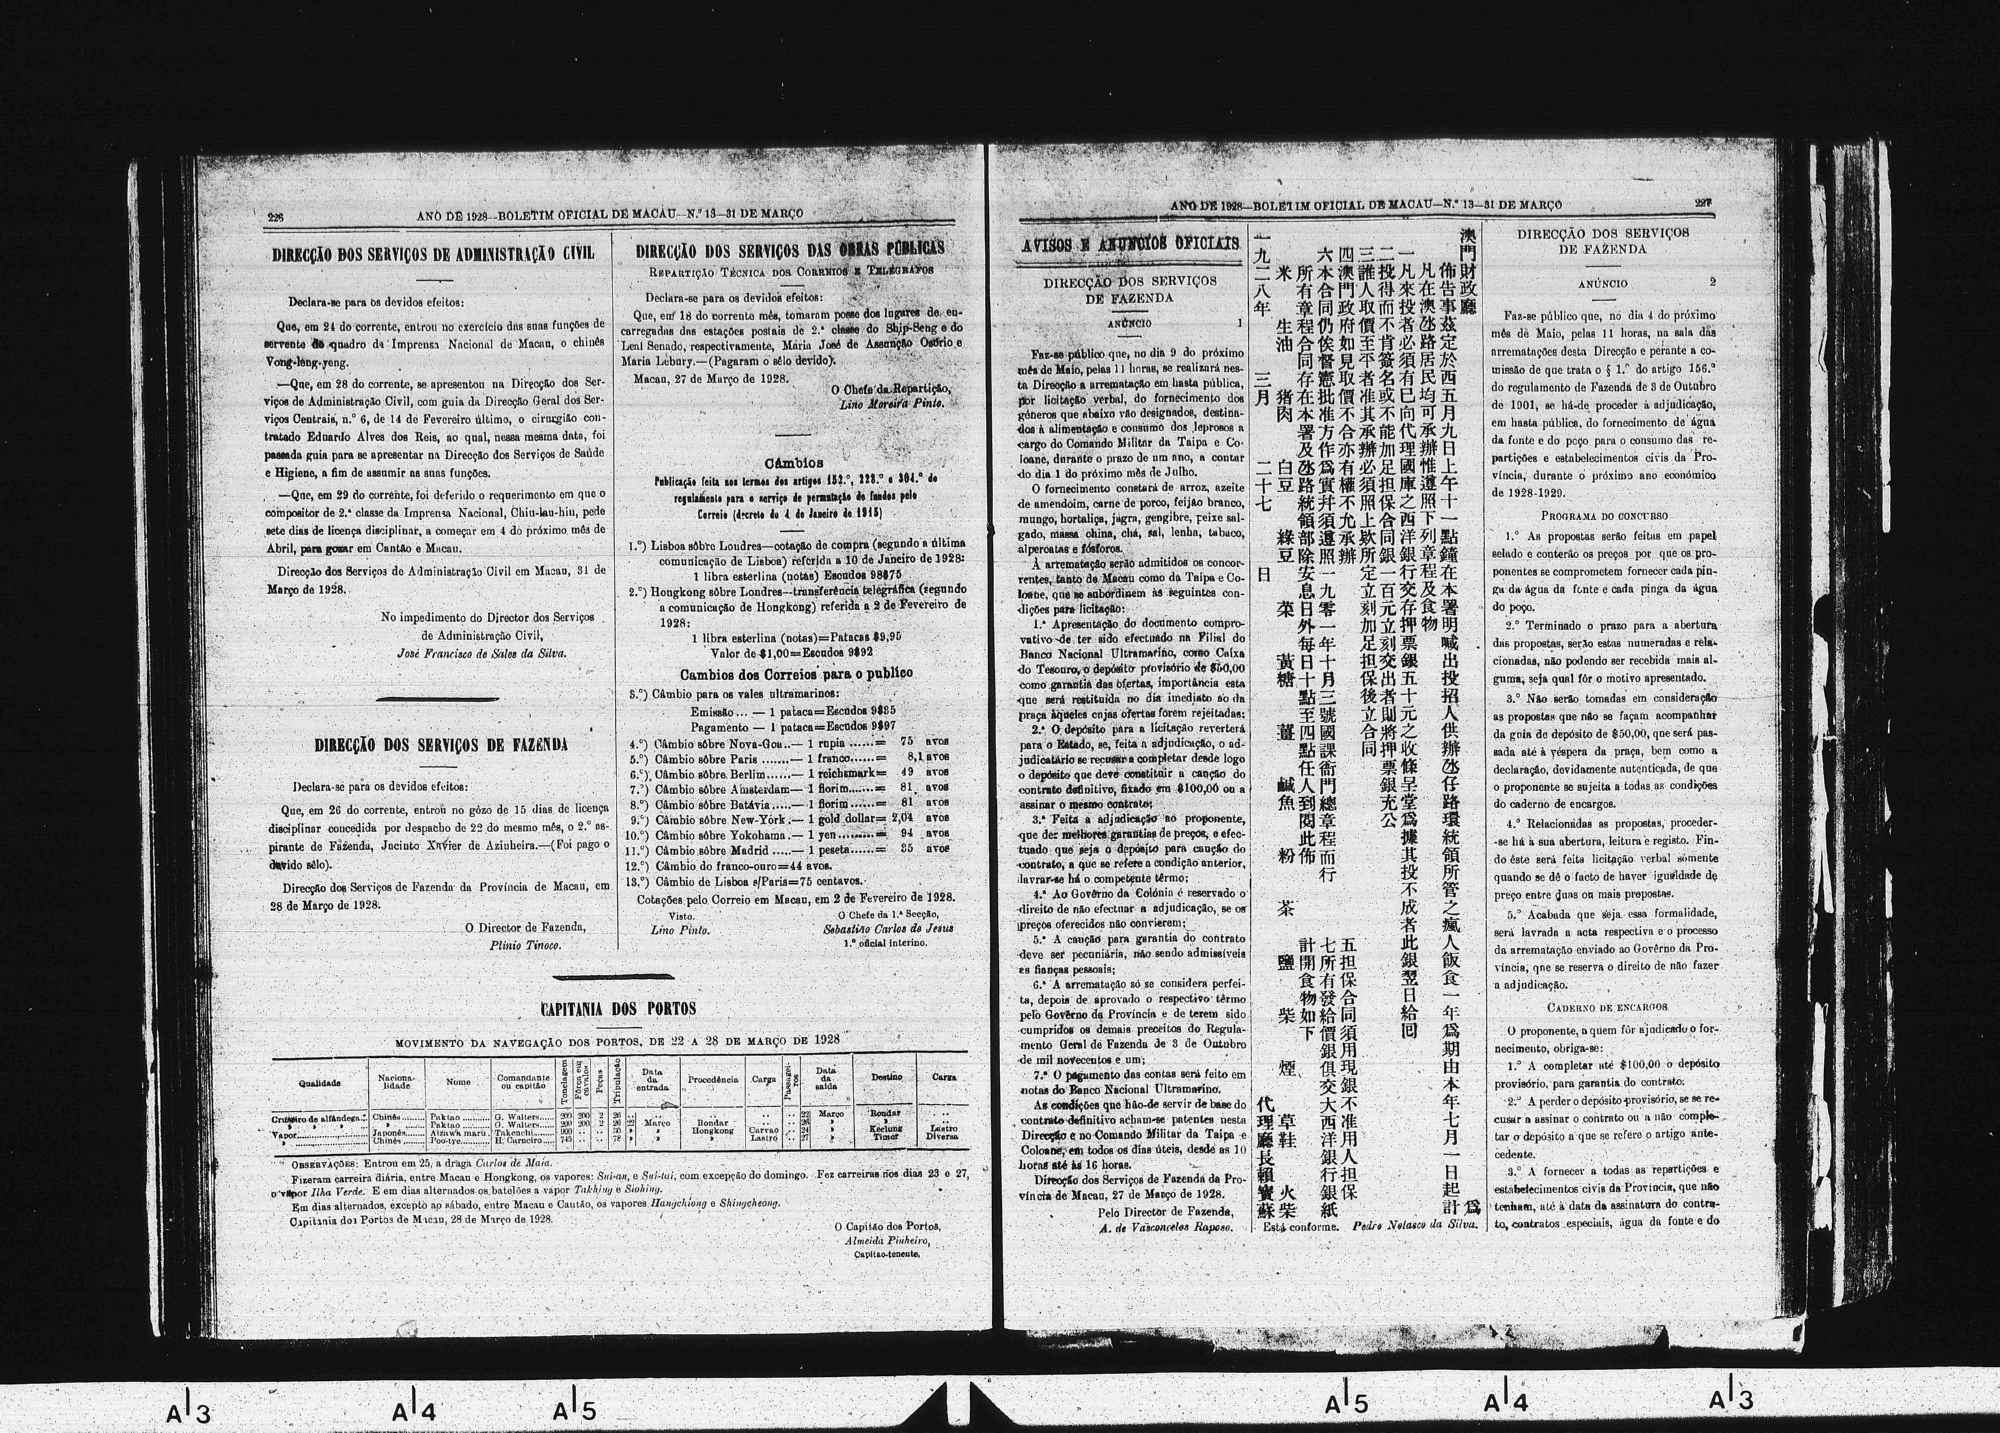 226
ANO DE 1928—BOLETIM OFICIAL DE MACAU—N.º 13—31 DE MARÇO
DIRECÇÃO DOS SERVIÇOS DE ADMINISTRAÇÃO CIVIL
Declara-se para os devidos efeitos:
Que, em 24 do corrente, entrou no exercício das suas funções de
servente do quadro da Imprensa Nacional de Macau, o chinês
Vong-leng-yeng.
—Que, em 28 do corrente, se apresentou na Direcção dos Ser-
viços de Administração Civil, com guia da Direcção Geral dos Ser-
viços Centrais, n.º 6, de 14 de Fevereiro último, o cirurgião con-
tratado Eduardo Alves dos Reis, ao qual, nessa mesma data, foi
passada guia para se apresentar na Direcção dos Serviços de Saúde
e Higiene, a fim de assumir as suas funções.
—Que, em 29 do corrente, foi deferido o requerimento em que o
compositor de 2.ª classe da Imprensa Nacional, Chiu-lau-hiu, pede
sete dias de licença disciplinar, a começar em 4 do próximo mês de
Abril, para gozar em Cantão e Macau.
Direcção dos Serviços de Administração Civil em Macau, 31 de
Março de 1928.
No impedimento do Director dos Serviços
de Administração Civil,
José Francisco de Sales da Silva.
DIRECÇÃO DOS SERVIÇOS DE FAZENDA
Declara-se para os devidos efeitos:
Que, em 26 do corrente, entrou no gôzo de 15 dias de licença
disciplinar concedida por despacho de 22 do mesmo mês, o 2.º as-
pirante de Fazenda, Jacinto Xavier de Azinheira.—(Foi pago o
devido sêlo).
Direcção dos Serviços de Fazenda da Província de Macau, em
28 de Março de 1928.
O Director de Fazenda,
Plínio Tinoco.
DIRECÇÃO DOS SERVIÇOS DAS OBRAS PÚBLICAS
REPARTIÇÃO TÉCNICA DOS CORREIOS E TELÉGRAFOS
Declara-se para os devidos efeitos:
Que, em 18 do corrente mês, tomaram posse dos lugares de en-
carregadas das estações postais de 2.ª classe do Ship-Seng e do
Leal Senado, respectivamente, Maria José de Assunção Osório e
Maria Lebury.—(Pagaram o sêlo devido).
Macau, 27 de Março de 1928.
O Chefe da Repartição,
Lino Moreira Pinto.
Câmbios
Publicação feita nos termos dos artigos 152.º, 228.º e 304.º do
regulamento para o serviço de permutação de fundos pelo
Correio (decreto de 4 de Janeiro de 1915)
1.º) Lisboa sôbre Londres—cotação de compra (segundo a última
comunicação de Lisboa) referida a 10 de Janeiro de 1928:
1 libra esterlina (notas) Escudos 98$75
2.º) Hongkong sôbre Londres—transferência telegráfica (segundo
a comunicação de Hongkong) referida a 2 de Fevereiro de
1928:
1 libra esterlina (notas)=Patacas $9,95
Valor de $1,00=Escudos 9$92
Cambios dos Correios para o publico
3.º) Câmbio para os vales ultramarinos:
Emissão ... — 1 pataca=Escudos 9$95
Pagamento — 1 pataca=Escudos 9$97
4.º) Câmbio sôbre Nova-Goa..— 1 rupia ......= 75 avos
5.º) Câmbio sôbre Paris .......— 1 franco......= 8,1 avos
6.º) Câmbio sôbre Berlim......— 1 reichsmark= 49 avos
7.º) Câmbio sôbre Amsterdam— 1 florim.......= 81 avos
8.º) Câmbio sôbre Batávia.....— 1 florim ......= 81 avos
9.º) Câmbio sôbre New-York .— 1 gold dollar= 2,04 avos
10.º) Câmbio sôbre Yokohama.— 1 yen ..........= 94 avos
11.º) Câmbio sôbre Madrid .....— 1 peseta......= 35 avos
12.º) Câmbio do franco-ouro=44 avos.
13.º) Câmbio de Lisboa s/Paris=75 centavos.
Cotações pelo Correio em Macau, em 2 de Fevereiro de 1928.
Visto. O Chefe da 1.ª Secção,
Lino Pinto. Sebastião Carlos de Jesus
1.º oficial interino.
CAPITANIA DOS PORTOS
MOVIMENTO DA NAVEGAÇÃO DOS PORTOS, DE 22 A 28 DE MARÇO DE 1928
Qualidade Naciona-lidade Nome Comandante ou capitão Tonelagem Fôrça em cavalos Peças Tripulação Data da entrada Procedência Carga Passagei-ros Data da saída Destino Carga
Cruzeiro de alfândega.. Chinês........ Paktao ........... G. Walters...... 209 200 2 26 .. .. .. .. .. 22 Março Rondar ..
» » ........ Paktao ........... G. Walters...... 209 200 2 26 22 Março Rondar .. .. » » ..
Vapor....................... Japonês...... Aizawa maru. Takenchi........ 900 .. .. 35 » » Hongkong Carvão .. 24 » Keelung Lastro
» Chinês ....... Poo-tye........... H. Carneiro.... 745 .. .. 78 » » » Lastro .. 27 » Timor Diversa
OBSERVAÇÕES: Entrou em 25, a draga Carlos de Maia.
Fizeram carreira diária, entre Macau e Hongkong, os vapores: Sui-an, e Sui-tai, com excepção do domingo. Fez carreiras nos dias 23 e 27,
o vapor Ilha Verde. E em dias alternados os batelões a vapor Takhing e Siohing.
Em dias alternados, excepto ao sábado, entre Macau e Cantão, os vapores Hangchiong e Shingcheong.
Capitania dos Portos de Macau, 28 de Março de 1928.
O Capitão dos Portos,
Almeida Pinheiro,
Capitão-tenente.
ANO DE 1928—BOLETIM OFICIAL DE MACAU—N.º 13—31 DE MARÇO
227
AVISOS E ANUNCIOS OFICIAIS
DIRECÇÃO DOS SERVIÇOS
DE FAZENDA
ANÚNCIO 1
Faz-se público que, no dia 9 do próximo
mês de Maio, pelas 11 horas, se realizará nes-
ta Direcção a arrematação em hasta pública,
por licitação verbal, do fornecimento dos
géneros que abaixo vão designados, destina-
dos à alimentação e consumo dos leprosos a
cargo do Comando Militar da Taipa e Co-
loane, durante o prazo de um ano, a contar
do dia 1 do próximo mês de Julho.
O fornecimento constará de arroz, azeite
de amendoim, carne de porco, feijão branco,
mungo, hortaliça, jagra, gengibre, peixe sal-
gado, massa china, chá, sal, lenha, tabaco,
alpercatas e fósforos.
À arrematação serão admitidos os concor-
rentes, tanto de Macau como da Taipa e Co-
loane, que se subordinem às seguintes con-
dições para licitação:
1.ª Apresentação do documento compro-
vativo de ter sido efectuado na Filial do
Banco Nacional Ultramarino, como Caixa
do Tesouro, o depósito provisório de $50,00
como garantia das ofertas, importância esta
que será restituída no dia imediato ao da
praça àqueles cujas ofertas forem rejeitadas;
2.ª O depósito para a licitação reverterá
para o Estado, se, feita a adjudicação, o ad-
judicatário se recusar a completar desde logo
o depósito que deve constituir a caução do
contrato definitivo, fixado em $100,00 ou a
assinar o mesmo contrato;
3.ª Feita a adjudicação ao proponente,
que der melhores garantias de preços, e efec-
tuado que seja o depósito para caução do
contrato, a que se refere a condição anterior,
lavrar-se há o competente têrmo;
4.ª Ao Govêrno da Colónia é reservado o
direito de não efectuar a adjudicação, se os
preços oferecidos não convierem;
5.ª A caução para garantia do contrato
deve ser pecuniária, não sendo admissíveis
as fianças pessoais;
6.ª A arrematação só se considera perfei-
ta, depois de aprovado o respectivo têrmo
pelo Govêrno da Província e de terem sido
cumpridos os demais preceitos do Regula-
mento Geral de Fazenda de 3 de Outubro
de mil novecentos e um;
7.ª O pagamento das contas será feito em
notas do Banco Nacional Ultramarino.
As condições que hão-de servir de base do
contrato definitivo acham-se patentes nesta
Direcção e no Comando Militar da Taipa e
Coloane, em todos os dias úteis, desde as 10
horas até às 16 horas.
Direcção dos Serviços de Fazenda da Pro-
víncia de Macau, 27 de Março de 1928.
Pelo Director de Fazenda,
A. de Vasconcelos Raposo.
澳門財政廳 爲
佈告事茲定於西五月九日上午十一點鐘在本署明喊出投招人供辦氹仔路環統領所管之瘋人飯食一年爲期由本年七月一日起計
凡在澳氹路居民均可承辦惟遵照下列章程及食物
一凡來投者必須有已向代理國庫之西洋銀行交存押票銀五十元之收條呈堂爲據其投不成者此銀翌日給回
二投得而不肯簽名或不能加足担保合同銀一百元立刻交出者則將押票銀充公
三誰人取價至平者准其承辦必須照上欵所定立刻加足担保後立合同
四澳門政府如見取價不合亦有權不允承辦 五担保合同須用現銀不准用人担保
六本合同仍俟督憲批准方作爲實幷須遵照一九零一年十月三號國課衙門總章程而行 七所有發給價銀俱交大西洋銀行銀紙
所有章程合同存在本署及氹路統領部除安息日外每日十點至四點任人到閱此佈 計開食物如下
米 生油 猪肉 白豆 綠豆 菜 黃糖 薑 鹹魚 粉 茶 鹽 柴 煙 草鞋 火柴
一九二八年 三月 二十七 日 代理廳長賴寶蘇
Está conforme. Pedro Nolasco da Silva.
DIRECÇÃO DOS SERVIÇOS
DE FAZENDA
ANÚNCIO 2
Faz-se público que, no dia 4 do próximo
mês de Maio, pelas 11 horas, na sala das
arrematações desta Direcção e perante a co-
missão de que trata o § 1.º do artigo 156.º
do regulamento de Fazenda de 3 de Outubro
de 1901, se há-de proceder à adjudicação,
em hasta pública, do fornecimento de água
da fonte e do poço para o consumo das re-
partições e estabelecimentos civis da Pro-
víncia, durante o próximo ano económico
de 1928-1929.
PROGRAMA DO CONCURSO
1.º As propostas serão feitas em papel
selado e conterão os preços por que os pro-
ponentes se comprometem fornecer cada pin-
ga da água da fonte e cada pinga da água
do poço.
2.º Terminado o prazo para a abertura
das propostas, serão estas numeradas e rela-
cionadas, não podendo ser recebida mais al-
guma, seja qual fôr o motivo apresentado.
3.º Não serão tomadas em consideração
as propostas que não se façam acompanhar
da guia de depósito de $50,00, que será pas-
sada até à véspera da praça, bem como a
declaração, devidamente autenticada, de que
o proponente se sujeita a todas as condições
do caderno de encargos.
4.º Relacionadas as propostas, proceder-
-se há à sua abertura, leitura e registo. Fin-
do êste será feita licitação verbal sòmente
quando se dê o facto de haver igualdade de
preço entre duas ou mais propostas.
5.º Acabada que seja essa formalidade,
será lavrada a acta respectiva e o processo
da arrematação enviado ao Govêrno da Pro-
víncia, que se reserva o direito de não fazer
a adjudicação.
CADERNO DE ENCARGOS
O proponente, a quem fôr ajudicado o for-
necimento, obriga-se:
1.º A completar até $100,00 o depósito
provisório, para garantia do contrato;
2.º A perder o depósito provisório, se se re-
cusar a assinar o contrato ou a não comple-
tar o depósito a que se refere o artigo ante-
cedente.
3.º A fornecer a todas as repartições e
estabelecimentos civis da Província, que não
tenham, até à data da assinatura do contra-
to, contratos especiais, água da fonte e do
A3 A4 A5 A5 A4 A3